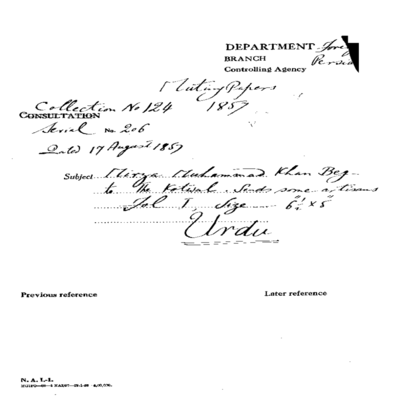 DEPARTMENT Fore
BRANCH Persi
Controlling Agency
Mutiny Papers
Collection No 124 1857
CONSULTATION
Serial No 206
Dated 17 August 1857
Subject Mirza Muhammad Khan Beg
to the Kotwal. Sends some artisans
Fol 1, Size 6" x 5"
Urdu
Previous reference Later reference
N. A. I.-1.